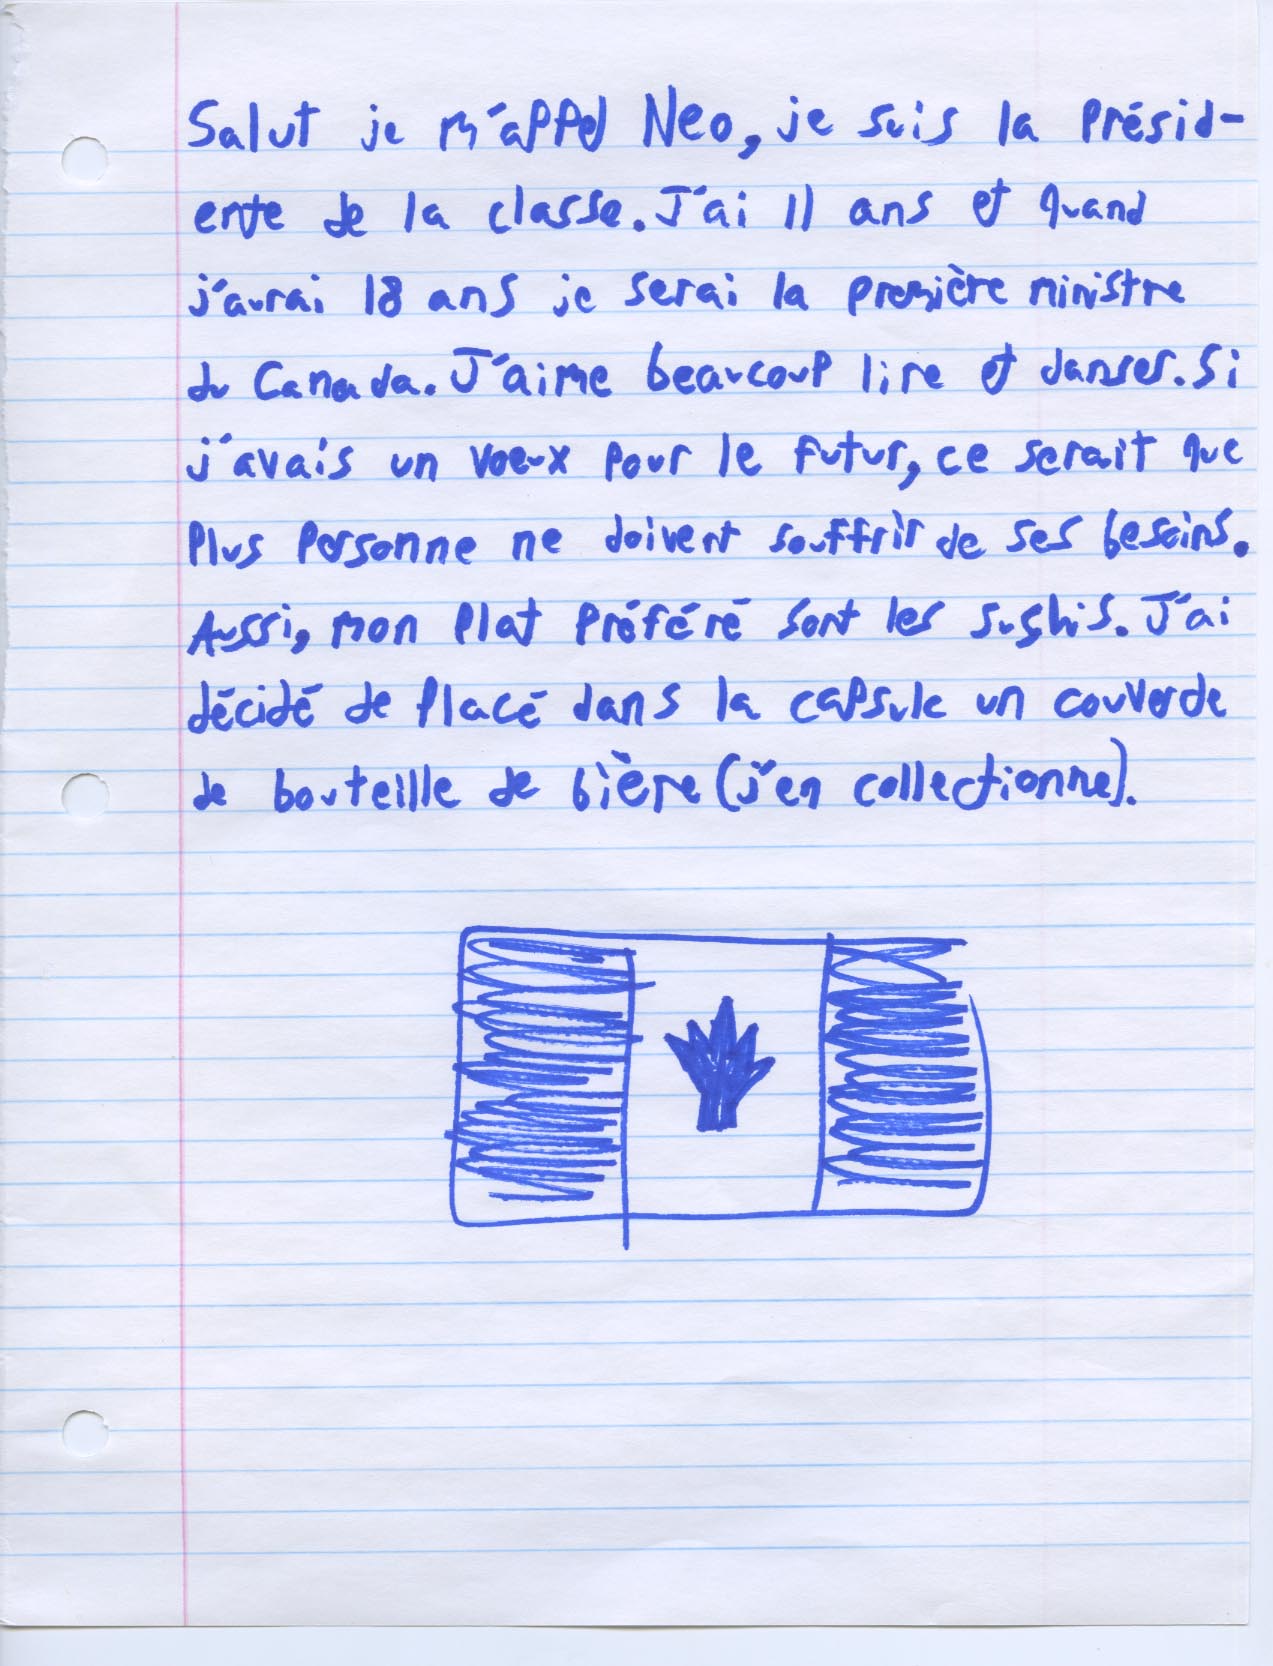 Salut je m'appel Neo, je suis la présid-
ente de la classe. J'ai 11 ans et quand
j'aurai 18 ans je serai la première ministre
du Canada. J'aime beaucoup lire et danser. Si
j'avais un voeux pour le futur, ce serait que
plus personne ne doivent souffrir de ses besoins.
Aussi, mon plat préféré sont les sushis. J'ai
décidé de placé dans la capsule un couverde
de bouteille de bière (j'en collectionne).